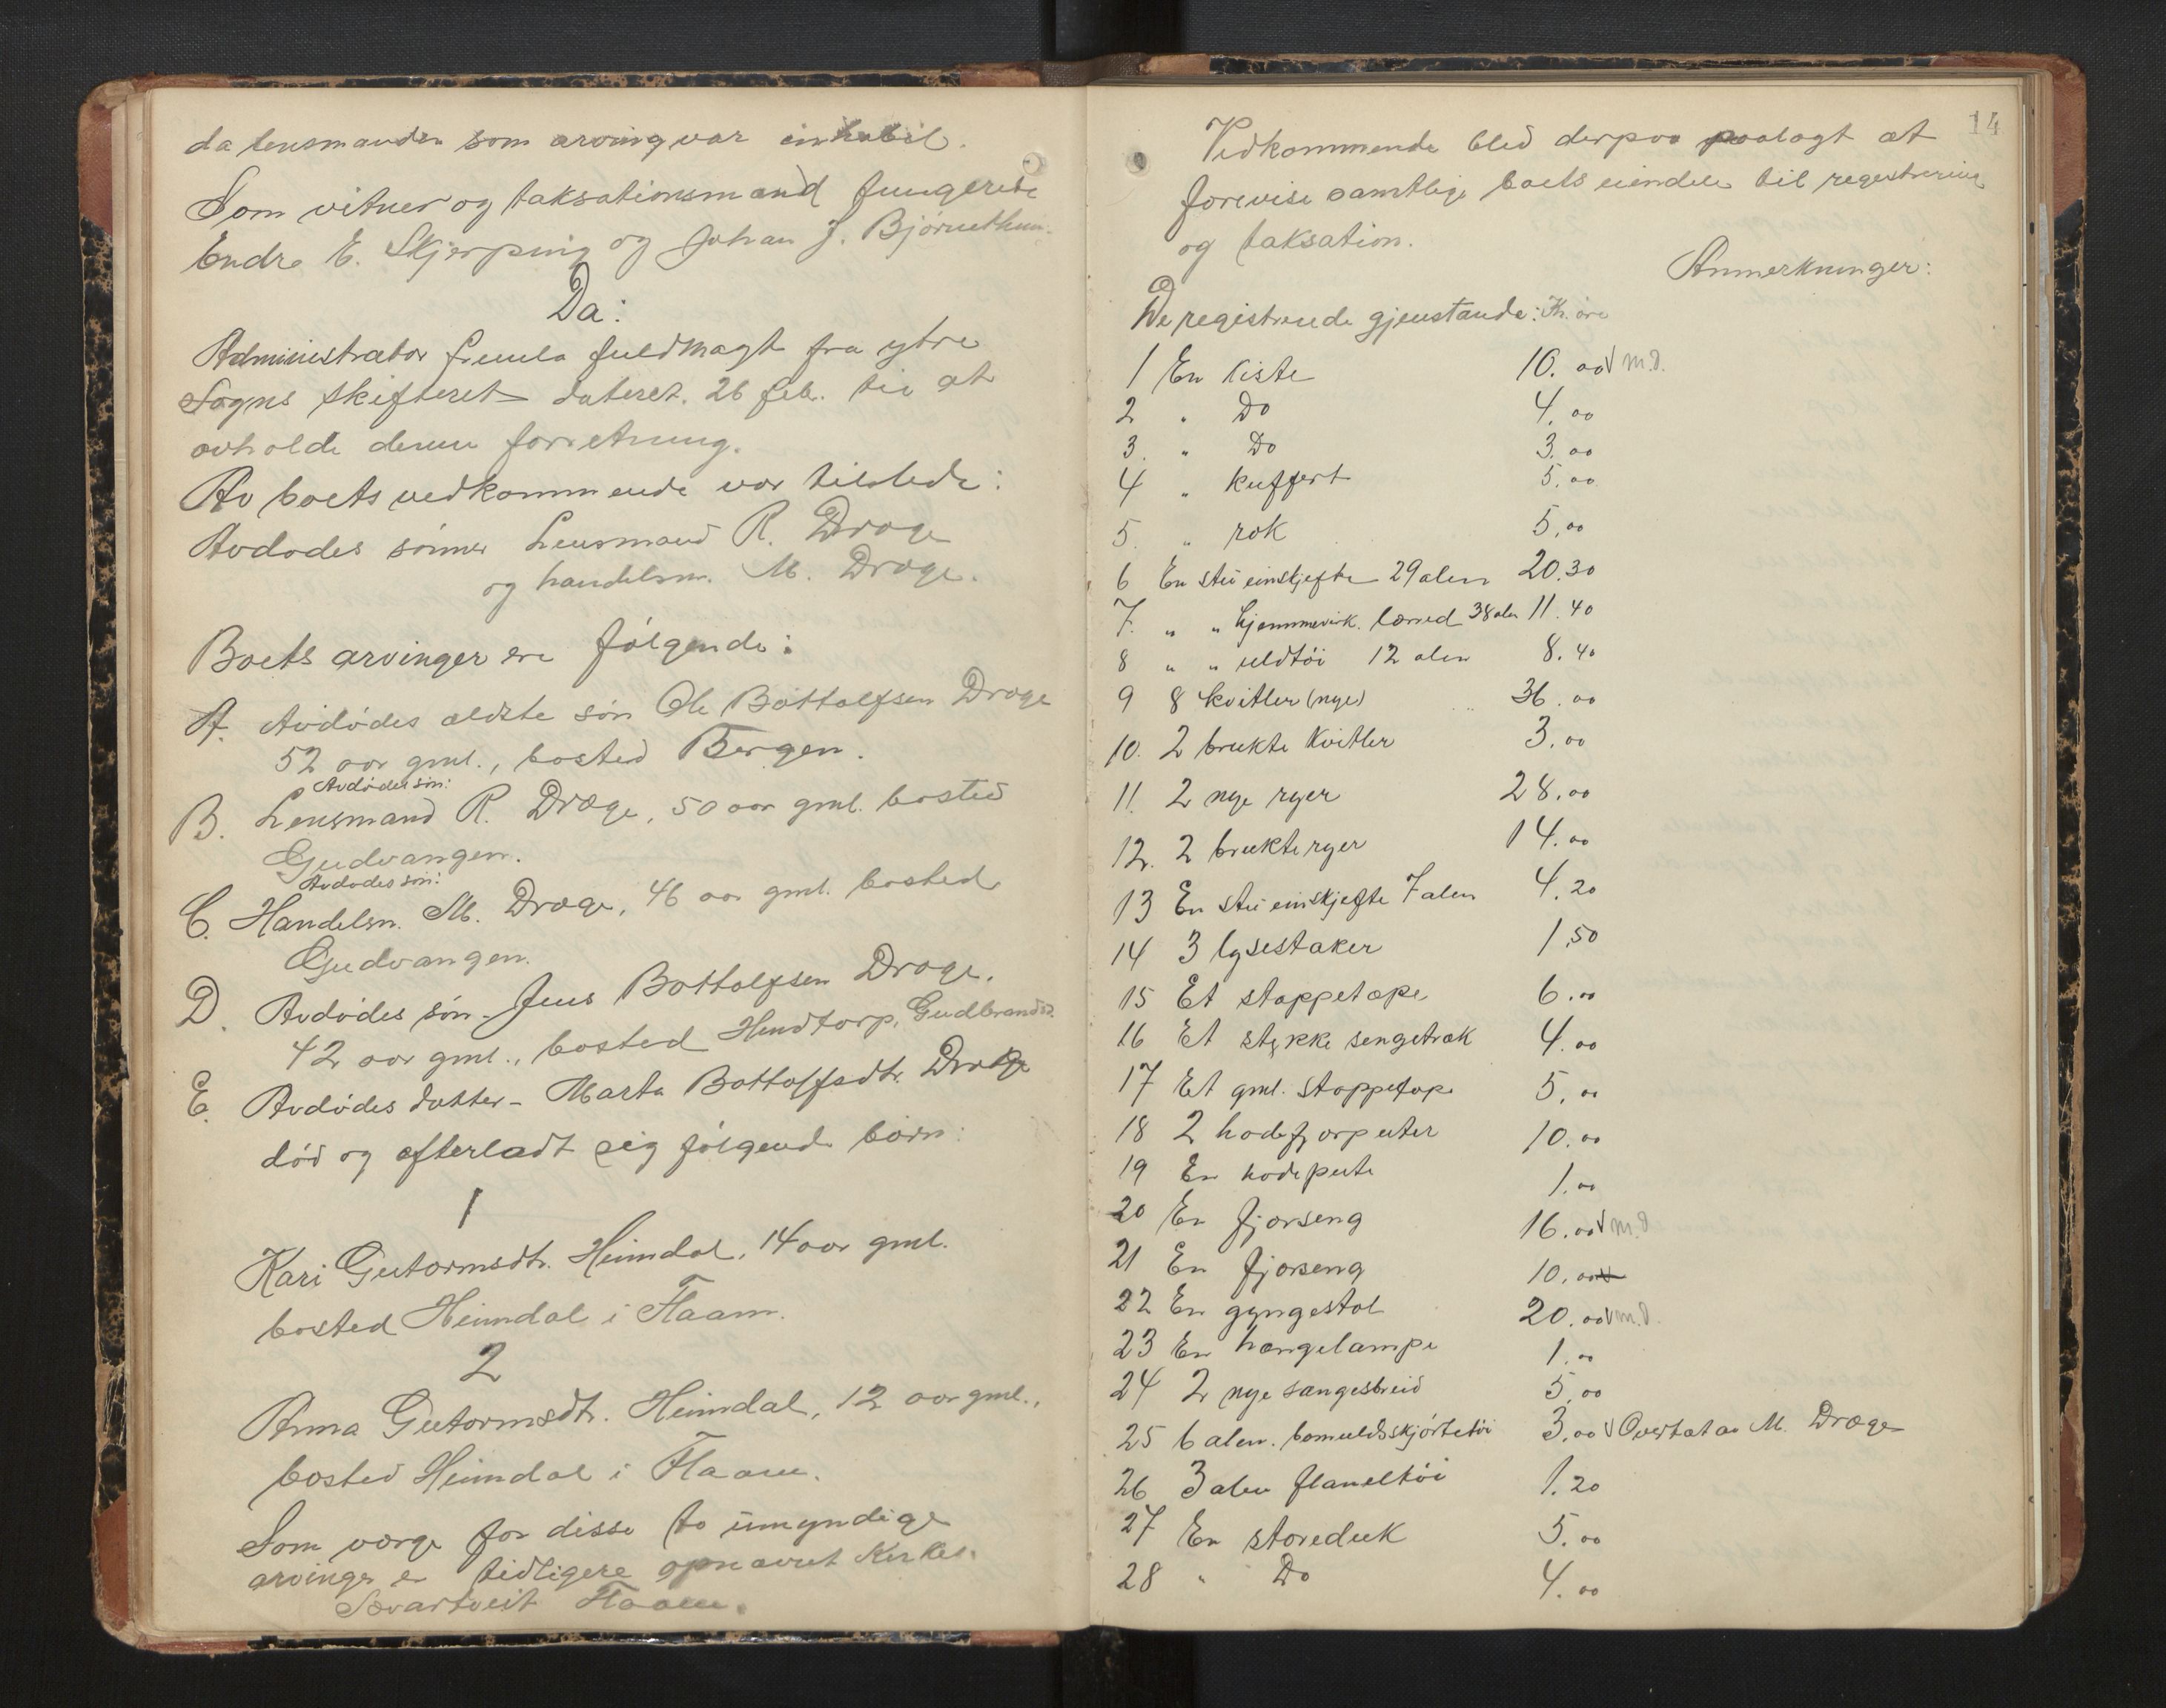 da lensmanden som arving var inhabil.
Som vitner og taksationsmænd fungerede
Endre E. Skjerping og Johan J. Bjørnethun.
Da:
Administrator fremla fuldmagt fra ytre
Sogns skifteret dateret. 26 feb. til at
avholde denne forretning.
Av boets vedkommende var tilstede:
Avdødes sønner Lensmand R. Drøge
og handelsm. M. Drøge.
Boets arvinger ere følgende:
A. Avdødes ældste søn Ole Bottolfsen Drøge
52 aar gml., bosted Bergen.
Avdødes søn:
B. Lensmand R. Drøge, 50 aar gml. bosted
Gudvangen.
Avdødes søn:
C. Handelsm. M. Drøge, 46 aar gml. bosted
Gudvangen.
D. Avdødes søn - Jens Bottolfsen Drøge.
42 aar gml., bosted Hundtorp, Gudbrandsd.
E. Avdødes datter - Marta Bottolfsdtr. Drøge
død og efterladt sig følgende børn:
1
Kari Gutormsdtr. Heimdal, 14 aar gml.
bosted Heimdal i Flaam.
2
Anna Gutormsdtr. Heimdal, 12 aar gml.,
bosted Heimdal i Flaam.
Som værge for disse to umyndige
arvinger er tidligere opnævnt
Flaam.
14
Vedkommende blev derpaa paalagt at
forevise samtlige boets eiendele til registrering
og taksation.
Anmerkninger:
De registrerede gjenstande: Kr. øre
1 En kiste 10.00 √ M.D.
2 " Do 4.00
3. " Do 3.00
4 " kuffert 5.00
5. " rok 5.00
6 En stu einskjefte 29 alen 20.30
7. " " hjemmevirk. lærred 38 alen 11.40
8 " " uldtøi 12 alen 8.40
9 8 kvitler (nye) 36.00
10. 2 brukte kvitler 3.00
11. 2 nye ryer 28.00
12. 2 brukte ryer 14.00
13 En stu einskjefte 7 alen 4.20
14 3 lysestaker 1.50
15 Et stoppetæpe 6.00
16 Et stykke sengetræk 4.00
17 Et gml. stoppetæpe 5.00
18 2 hodefjørputer 10.00
19 En hodepute 1.00
20 En fjørseng 16.00 √ M.D
21 En fjørseng 10.00
22 En gyngestol 20.00 √ M.D.
23 En hængelampe 1.00
24 2 nye sængesbreid 5.00
25 6 alen. bomuldsskjørtetøi 3.00 √ Overtat av M. Drøge
26 3 alen flaneltøi 1.20
27 En storeduk 5.00
28 " Do 4.00